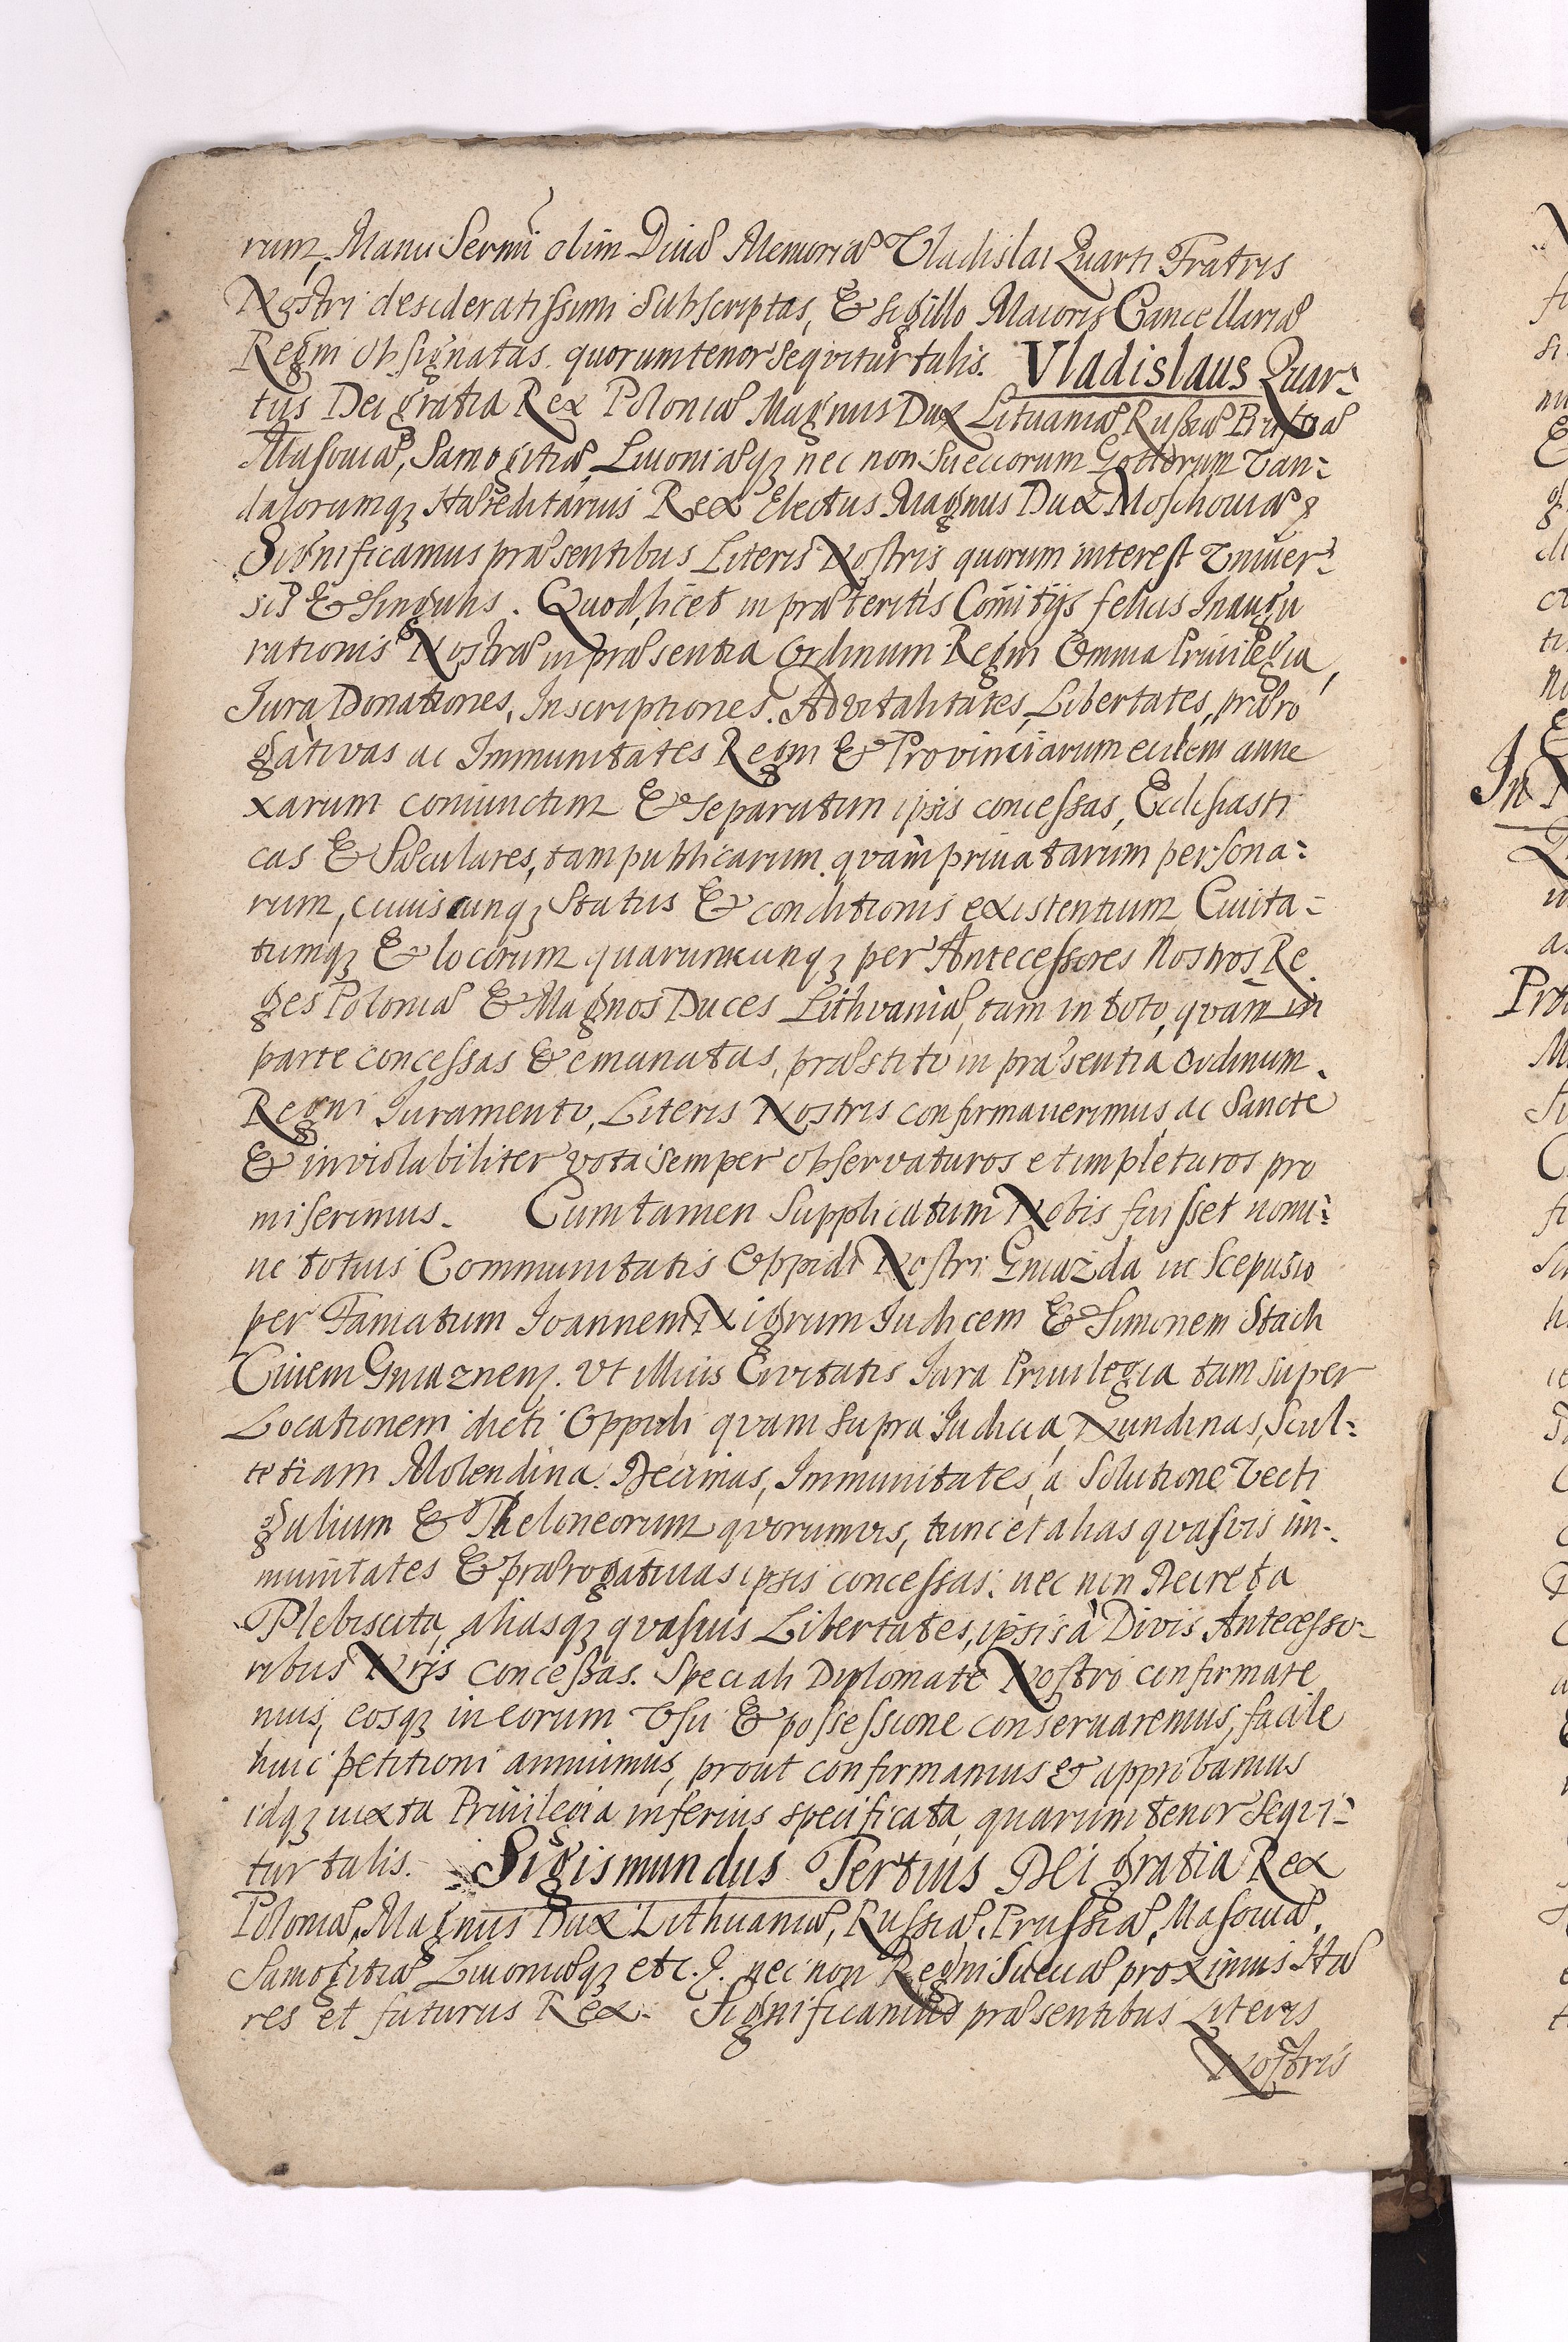 rum, Manu Sermi olim Divæ Memoriæ Vladislai Quarti Fratris
Nostri desideratissimi Subscriptas, & sigillo Maioris Cancellariæ
Regni obsignatas. quorum tenor sequitur talis. Vladislaus Quar-
tus Dei gratia Rex Poloniæ Magnus Dux Lituaniæ Russiæ Prussiæ
Masouiæ, Samogitiæ Liuoniæq; nec non Sueccorum Gottorum Van-
dalorumq; Hæreditarius Rex Electus Magnus Dux Moschouiæ
Significamus præsentibus Literis Nostris quorum interest Vniuer-
sis & singulis. Quod, licet in præteritis Comitijs felicis Inaugu
rationis Nostræ in præsentia Ordinum Regni Omnia Priuilegia,
Jura Donationes, Inscriptiones. Advitalitates, Libertates, præro
gativas ac Immunitates Regni & Provinciarum eidem anne
xarum coniunctim & separatim ipsis concessas, Ecclesiasti
cas & Sæculares, tam publicarum. qvàm priuatarum persona-
rum, cuiuscunq; Status & conditionis existentium Ciuita-
tumq; & locorum quarumcunq; per Antecessores Nostros Re
ges Poloniæ & Magnos Duces Lithvaniæ, tam in toto, qvàm in
parte concessas & emanatas, præstito in præsentia Ordinum
Regni Juramento, Literis Nostris confirmauerimus, ac Sanctè
& inviolabiliter vota semper observaturos et impleturos pro
miserimus. Cum tamen Supplicatum Nobis fuisset nomi-
ne totius Communitatis Oppidi Nostri Gniazda in Scepusio
per Famatum Joannem Nigrum Judicem & Simonem Stach
Ciuem Gniaznens. Vt illius Civitatis Jura Priuilegia tam super
Locationem dicti Oppidi qvam supra Judicia, Nundinas, Scul-
tetiam Molendina. Decimas, Immunitates, a Solutione Vecti
galium & Theloneorum qvorumvis, tunc et alias qvasvis im-
munitates & prærogatiuas ipsis concessas: nec non Decreta
Plebiscita, aliasq; qvasuis Libertates, ipsis à Divis Antecesso-
ribus Nris concessas. Speciali Diplomate Nostro confirmare
mus, eosq; in eorum Vsu & possessione conseruaremus, facile
huic petitioni annuimus, prout confirmamus & approbamus
idq; iuxta Priuilegia inferius specificata, quarum tenor sequi-
tur talis. Sigismundus Tertius Dei gratia Rex
Poloniæ, Magnus Dux Lithuaniæ, Russiæ, Prussiæ, Masouiæ,
Samogitiæ Liuoniæq; etc. nec non Regni Sueciæ proximus Hæ
res et futurus Rex. Significamus præsentibus Literis
Nostris